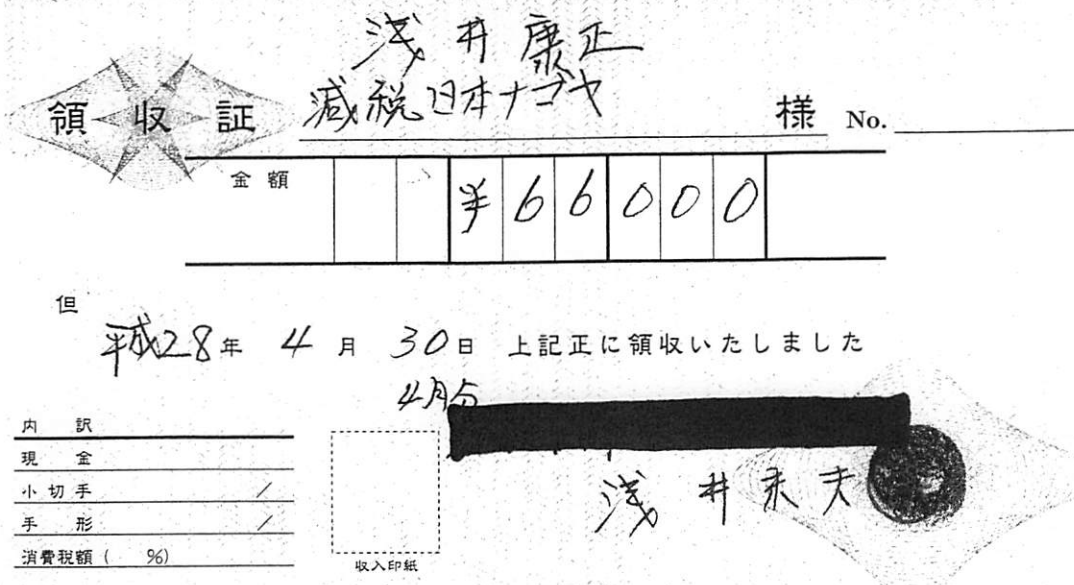 浅井康正
領収証 減税日本ナゴヤ 様 No.
金額 ¥66000
但
平成28年 4月 30日 上記正に領収いたしました
4月分
内訳
現金
小切手 /
手形 /
消費税額( %)
収入印紙
浅井
夫